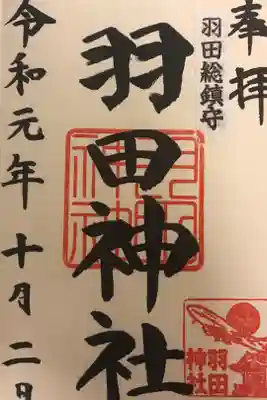 奉拝
羽田総鎮守
羽田神社
令和元年十月二日
羽田
神社